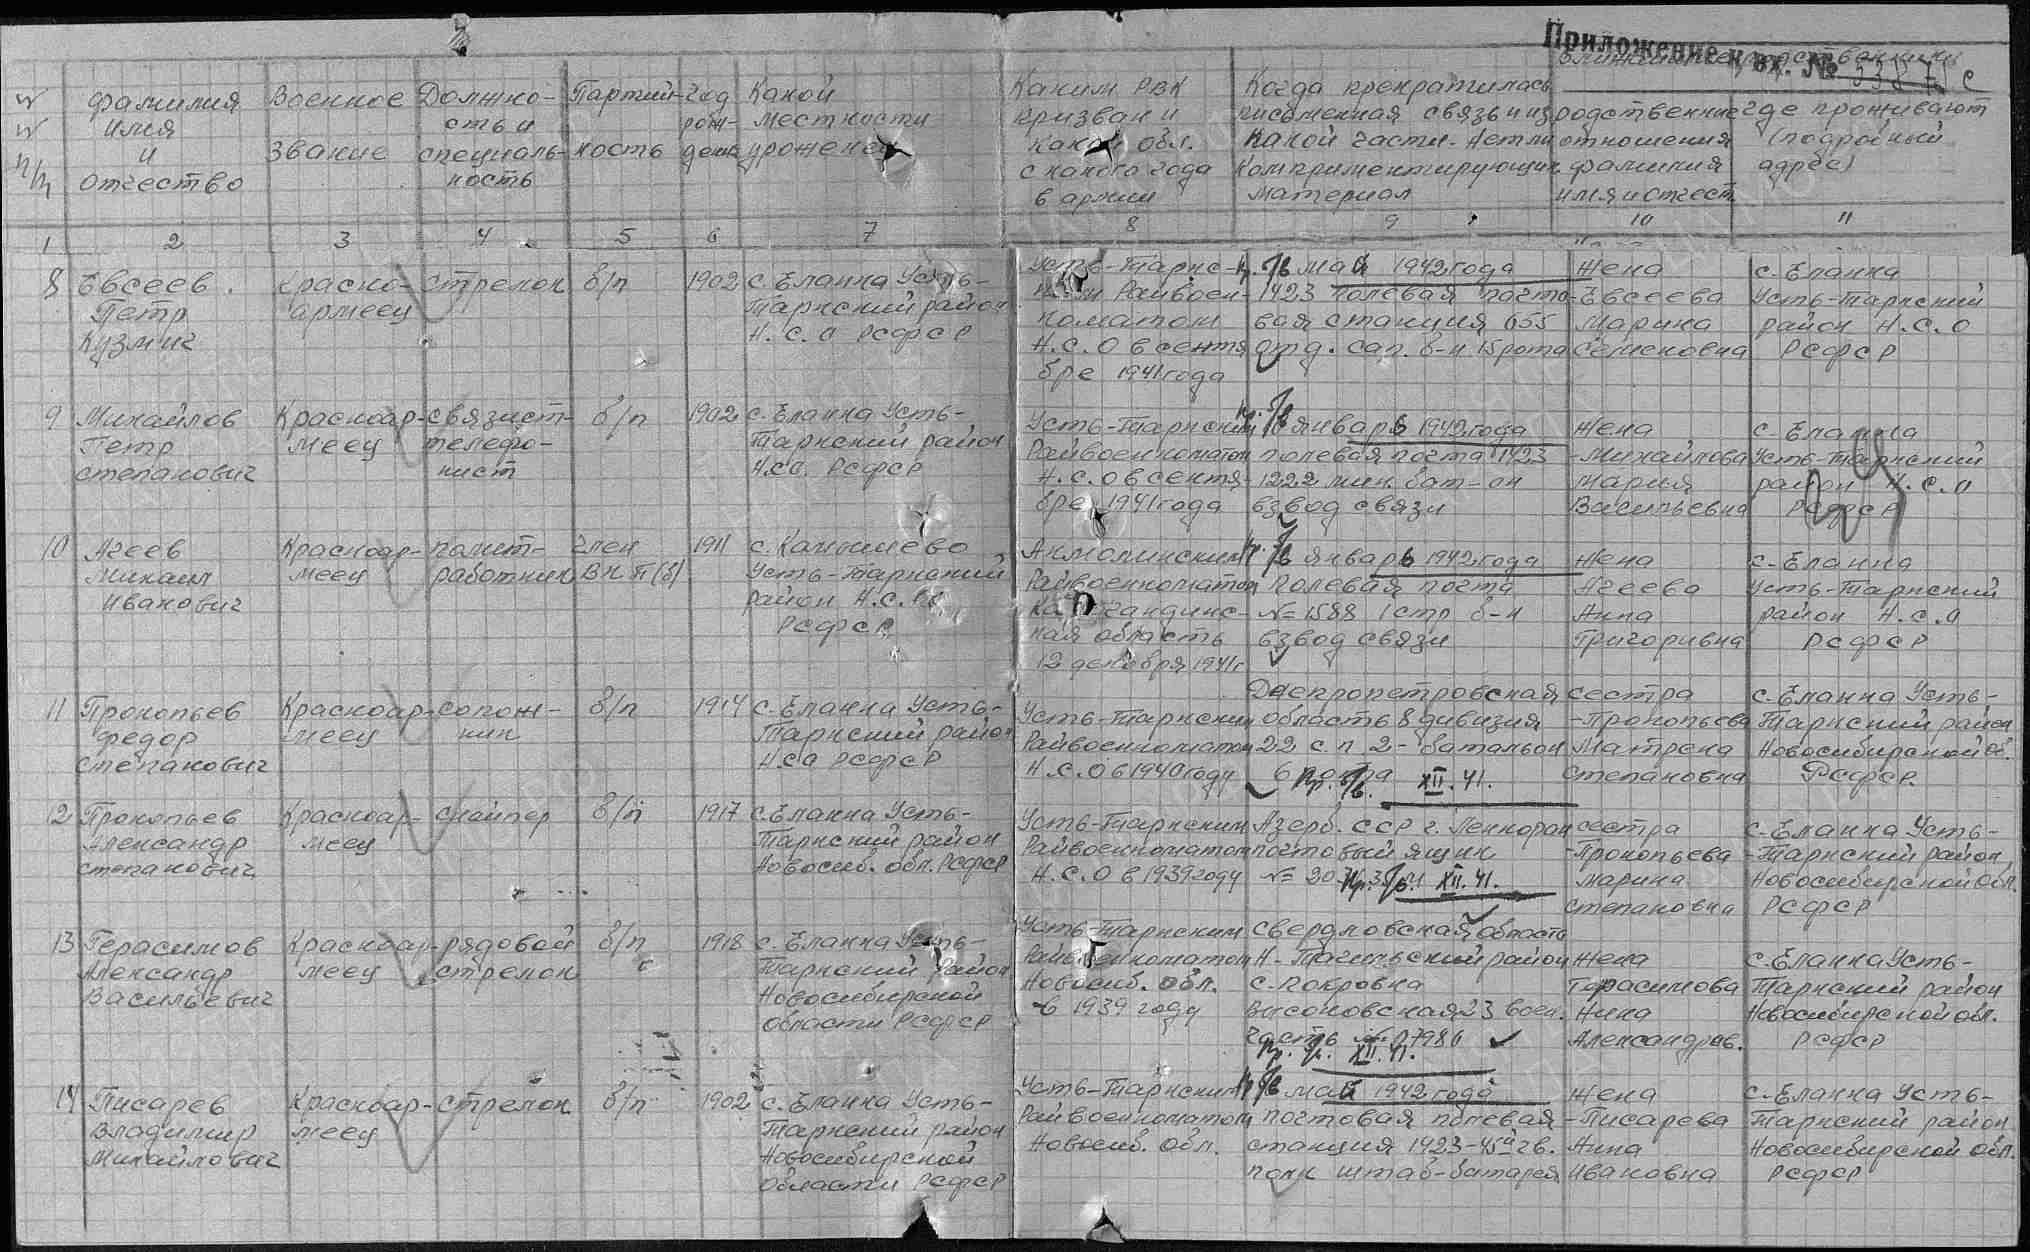 Приложение к вх. № 55871 с
ближайшие родственники
№ № п/п
Фамилия имя и отчество
Военное звание
Должность и специальность
Партийность
Год рождения
Какой местности уроженец
Каким РВК призван и какой обл. с какого года в армии
Когда прекратилась письменная связь и из какой части. Нет ли компрометирующих материал
родственные отношения фамилия имя и отчест.
где проживают (подробный адрес)
1 2 3 4 5 6 7 8 9 10 11
8 Евсеев Петр Кузмич
Красноармеец
стрелок
б/п
1902
с. Еланка Усть-
Таркский район
Н. С. О РСФСР
Усть-Таркс-
ким Райвоен-
коматом
Н. С. О в сентя
бре 1941 года
пр. б/в май 1942 года
1423 полевая почто-
вая станция 655
отд. сап. б-н 15 рота
Жена
Евсеева
Марина
Семеновна
с. Еланка
Усть-Таркский
район Н. С. О
РСФСР
9 Михайлов
Петр
Степанович
Красноар-
меец
связист-
телефо-
нист
б/п
1902
с. Еланка Усть-
Таркский район
Н.С.О. РСФСР
Усть-Таркским
Райвоенкоматом
Н. С. О в сентя-
бре 1941 года
пр. б/в январь 1942 года
полевая почта 1423
1222 мин. бат-он
взвод связи
Жена
Михайлова
Мария
Васильевна
с. Еланка
Усть-Таркский
район Н. С. О
РСФСР
10 Агеев
Михаил
Иванович
Красноар-
меец
полит-
работник
член
ВКП(б)
1911
с. Камышево
Усть-Таркский
район Н. С. О
РСФСР
Акмолинским
Райвоенкоматом
Карагандинс-
кая область
12 декабря 1941 г
пр. б/в январь 1942 года
полевая почта
№ 1588 1 стр б-н
взвод связи
Жена
Агеева
Анна
Григоривна
с. Еланка
Усть-Таркский
район Н. С. О
РСФСР
11 Прокопьев
Федор
Степанович
Красноар-
меец
сопож-
ник
б/п
1914
с. Еланка Усть-
Таркский район
Н.С.О РСФСР
Усть-Таркским
Райвоенкоматом
Н. С. О в 1940 году
Днепропетровская
область 8 дивизия
22 с. п 2-батальон
6 рота
пр. б/в. XII. 41.
сестра
Прокопьева
Матрена
Степановна
с. Еланка Усть-
Таркский район
Новосибирской об.
РСФСР.
12 Прокопьев
Александр
Степанович
Красноар-
меец
снайпер
б/п
1917
с. Еланка Усть-
Таркский район
Новосиб. обл. РСФСР
Усть-Таркским
Райвоенкоматом
Н. С. О в 1939 году
Азерб. ССР г. Ленкоран
почтовый ящик
№ 20
пр. б/в. XII. 41.
сестра
Прокопьева
Марина
Степановна
с. Еланка Усть-
Таркский район,
Новосибирской Обл.
РСФСР
13 Герасимов
Александр
Васильевич
Красноар-
меец
рядовой
стрелок
б/п
1918
с. Еланка Усть-
Таркский район
Новосибирской
области РСФСР
Усть-Таркским
Райвоенкоматом
Новосиб. обл.
в 1939 году
Свердловская область
Н-Тагильский район
с. Покровка
Высоковская 23 воен.
часть 7986
пр. б/в. XII. 41.
Жена
Герасимова
Нина
Александров.
с. Еланка Усть-
Таркский район
Новосибирской обл.
РСФСР
14 Писарев
Владимир
Михайлович
Красноар-
меец
стрелок
б/п
1902
с. Еланка Усть-
Таркский район
Новосибирской
области РСФСР
Усть-Таркским
Райвоенкоматом
Новосиб. обл.
пр. б/в май 1942 года
почтовая полевая
станция 1423-45й гв.
полк штаб-батарея
Жена
Писарева
Нина
Ивановна
с. Еланка Усть-
Таркский район
Новосибирской обл.
РСФСР